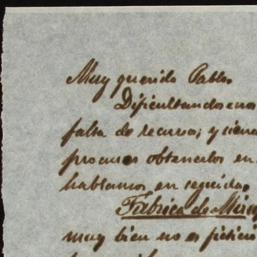 Muy querido Pablo.
Dificultandonos
falta de recursos; y siend
procurar obtenerlos en
hablamos en seguida.
Fábrica de Mieres
muy bien no es ficticio